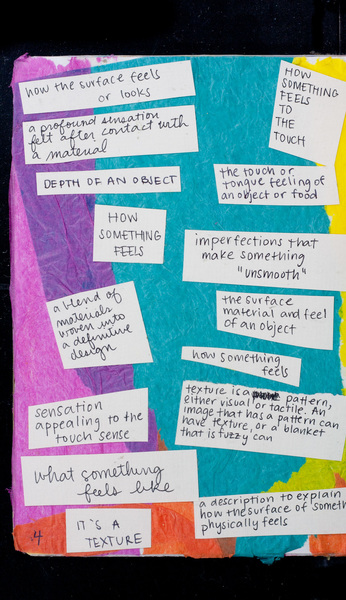 how the surface feels
or looks
HOW
SOMETHING
FEELS
TO
THE
TOUCH
a profound sensation
felt after contact with
a material
DEPTH OF AN OBJECT
the touch or
tongue feeling of
an object or food
HOW
SOMETHING
FEELS
imperfections that
make something
"unsmooth"
a blend of
materials
woven into
a definitive
design
the surface
material and feel
of an object
how something
feels
texture is a pattern,
either visual or tactile. An
image that has a pattern can
have texture, or a blanket
that is fuzzy can
sensation
appealing to the
touch sense
what something
feels like
a description to explain
how the surface of someth
physically feels
IT'S A
TEXTURE
4